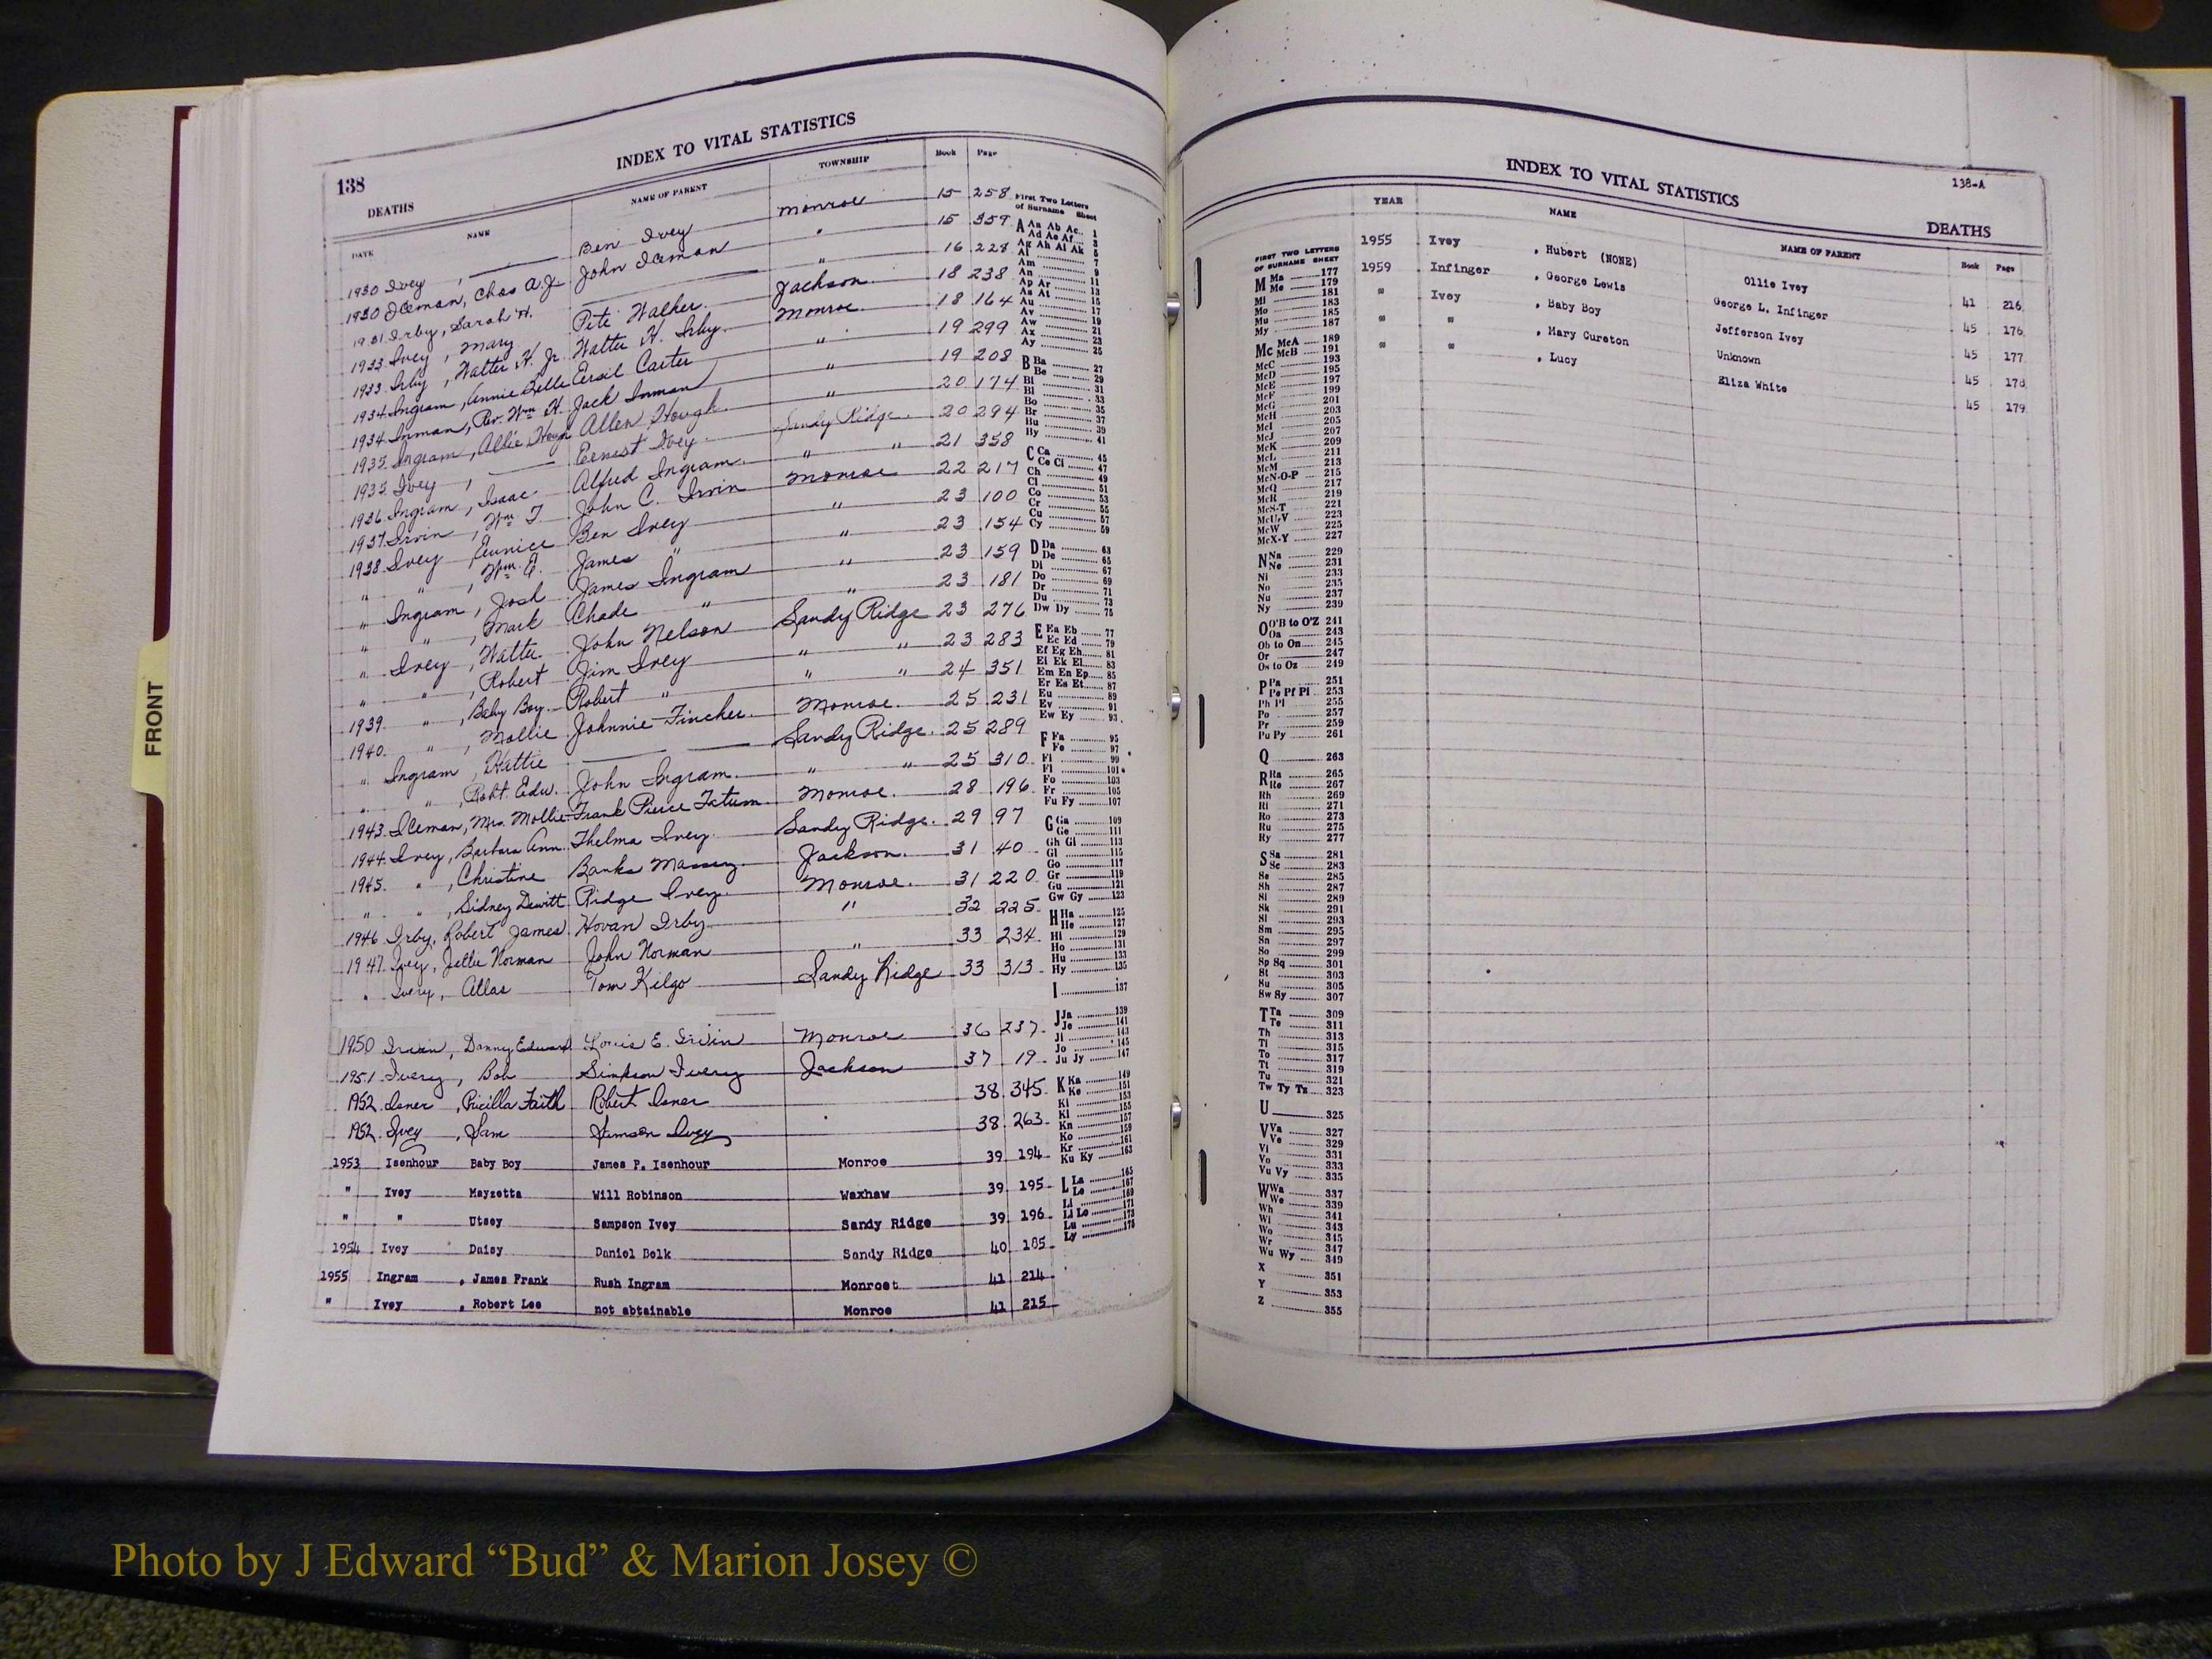 INDEX TO VITAL STATISTICS
138
DEATHS
DATE NAME NAME OF PARENT TOWNSHIP Book Page
1930 Ivey, —— Ben Ivey Monroe 15 258
1930 Iceman, Chas A.J. John Iceman " 15 359
1931 Irby, Sarah H. —— " 16 228
1933 Ivey, Mary Pete Walker Jackson 18 238
1933 Irby, Walter H. Jr. Walter H. Irby Monroe 18 164
1934 Ingram, Annie Belle Carter " 19 299
1934 Inman, Rev. Wm H. Jack Inman " 19 208
1935 Ingram, Allie Hough Allen Hough " 20 174
1935 Ivey, —— Ernest Ivey Sandy Ridge 20 294
1936 Ingram, Isaac Alfred Ingram " " 21 358
1937 Irvin, Wm T John C. Irvin Monroe 22 217
1938 Ivey Eunice Ben Ivey " 23 100
" ", Wm. James " " 23 154
" Ingram, Josh James Ingram " 23 159
" ", Mark Chade " " 23 181
" Ivey, Walter John Nelson Sandy Ridge 23 276
" ", Robert Jim Ivey " " 23 283
1939 ", Baby Boy Robert " " " 24 351
1940 ", Mollie Johnnie Fincher Monroe 25 231
" Ingram, Hattie —— Sandy Ridge 25 289
" ", Robt. Edw. John Ingram " " 25 310
1943 Iceman, Mrs. Mollie Frank Pierce Tatum Monroe 28 196
1944 Ivey, Barbara Ann Thelma Ivey Sandy Ridge 29 97
1945 ", Christine Banks Massey Jackson 31 40
" ", Sidney Dewitt Ridge Ivey Monroe 31 220
1946 Irby, Robert James Hovan Irby " 32 225
1947 Ivey, Jettie Norman John Norman " 33 234
" Ivery, Allas Tom Kilgo Sandy Ridge 33 313
1950 Irvin, Danny Edward Louis E. Irvin Monroe 36 237
1951 Ivery, Bob Simpson Ivery Jackson 37 19
1952 Isner, Pricilla Faith Robert Isner 38 345
1952 Ivey, Sam Jamson Ivey 38 263
1953 Isenhour Baby Boy James P. Isenhour Monroe 39 194
" Ivey Mayzetta Will Robinson Waxhaw 39 195
" " Utsey Sampson Ivey Sandy Ridge 39 196
1954 Ivey Daisy Daniel Belk Sandy Ridge 40 185
1955 Ingram, James Frank Rush Ingram Monroet 41 214
" Ivey, Robert Lee not obtainable Monroe 41 215
First Two Letters
of Surname Sheet
A Aa Ab Ac 1
Ad Ae Af 3
Ag Ah Ai Ak 5
Al 7
Am 9
An 11
Ap Ar 13
As At 15
Au 17
Av 19
Aw 21
Ax 23
Ay 25
B Ba 27
Be 29
Bi 31
Bl 33
Bo 35
Br 37
Bu 39
By 41
C Ca 45
Ce Ci 47
Ch 49
Cl 51
Co 53
Cr 55
Cu 57
Cy 59
D Da 63
De 65
Di 67
Do 69
Dr 71
Du 73
Dw Dy 75
E Ea Eb 77
Ec Ed 79
Ef Eg Eh 81
Ei Ek El 83
Em En Ep 85
Er Es Et 87
Eu 89
Ev 91
Ew Ey 93
F Fa 95
Fe 97
Fi 99
Fl 101
Fo 103
Fr 105
Fu Fy 107
G Ga 109
Ge 111
Gh Gi 113
Gl 115
Go 117
Gr 119
Gu 121
Gw Gy 123
H Ha 125
He 127
Hi 129
Ho 131
Hu 133
Hy 135
I 137
J Ja 139
Je 141
Ji 143
Jo 145
Ju Jy 147
K Ka 149
Ke 151
Ki 153
Kl 155
Kn 157
Ko 159
Kr 161
Ku Ky 163
L La 165
Le 167
Li 169
Ll Lo 171
Lu 173
Ly 175
INDEX TO VITAL STATISTICS
138-A
DEATHS
YEAR NAME NAME OF PARENT Book Page
1955 Ivey, Hubert (NONE) Ollie Ivey 41 216
1959 Infinger, George Lewis George L. Infinger 45 176
" Ivey, Baby Boy Jefferson Ivey 45 177
" ", Mary Cureton Unknown 45 178
" ", Lucy Eliza White 45 179
FIRST TWO LETTERS
OF SURNAME SHEET
M Ma 177
Me 179
Mi 181
Mo 183
Mu 185
My 187
Mc McA 189
McB 191
McC 193
McD 195
McE 197
McF 199
McG 201
McH 203
McI 205
McJ 207
McK 209
McL 211
McM 213
McN-O-P 215
McQ 217
McR 219
McS-T 221
McU-V 223
McW 225
McX-Y 227
N Na 229
Ne 231
Ni 233
No 235
Nu 237
Ny 239
O O'B to O'Z 241
Oa 243
Ob to On 245
Or 247
Os to Oz 249
P Pa 251
Pe Pf Pi 253
Ph Pl 255
Po 257
Pr 259
Pu Py 261
Q 263
R Ra 265
Re 267
Rh 269
Ri 271
Ro 273
Ru 275
Ry 277
S Sa 281
Sc 283
Se 285
Sh 287
Si 289
Sk 291
Sl 293
Sm 295
Sn 297
So 299
Sp Sq 301
St 303
Su 305
Sw Sy 307
T Ta 309
Te 311
Th 313
Ti 315
To 317
Tt 319
Tu 321
Tw Ty Tz 323
U 325
V Va 327
Ve 329
Vi 331
Vo 333
Vu Vy 335
W Wa 337
We 339
Wh 341
Wi 343
Wo 345
Wr 347
Wu Wy 349
X 351
Y 353
Z 355
FRONT
Photo by J Edward “Bud” & Marion Josey ©